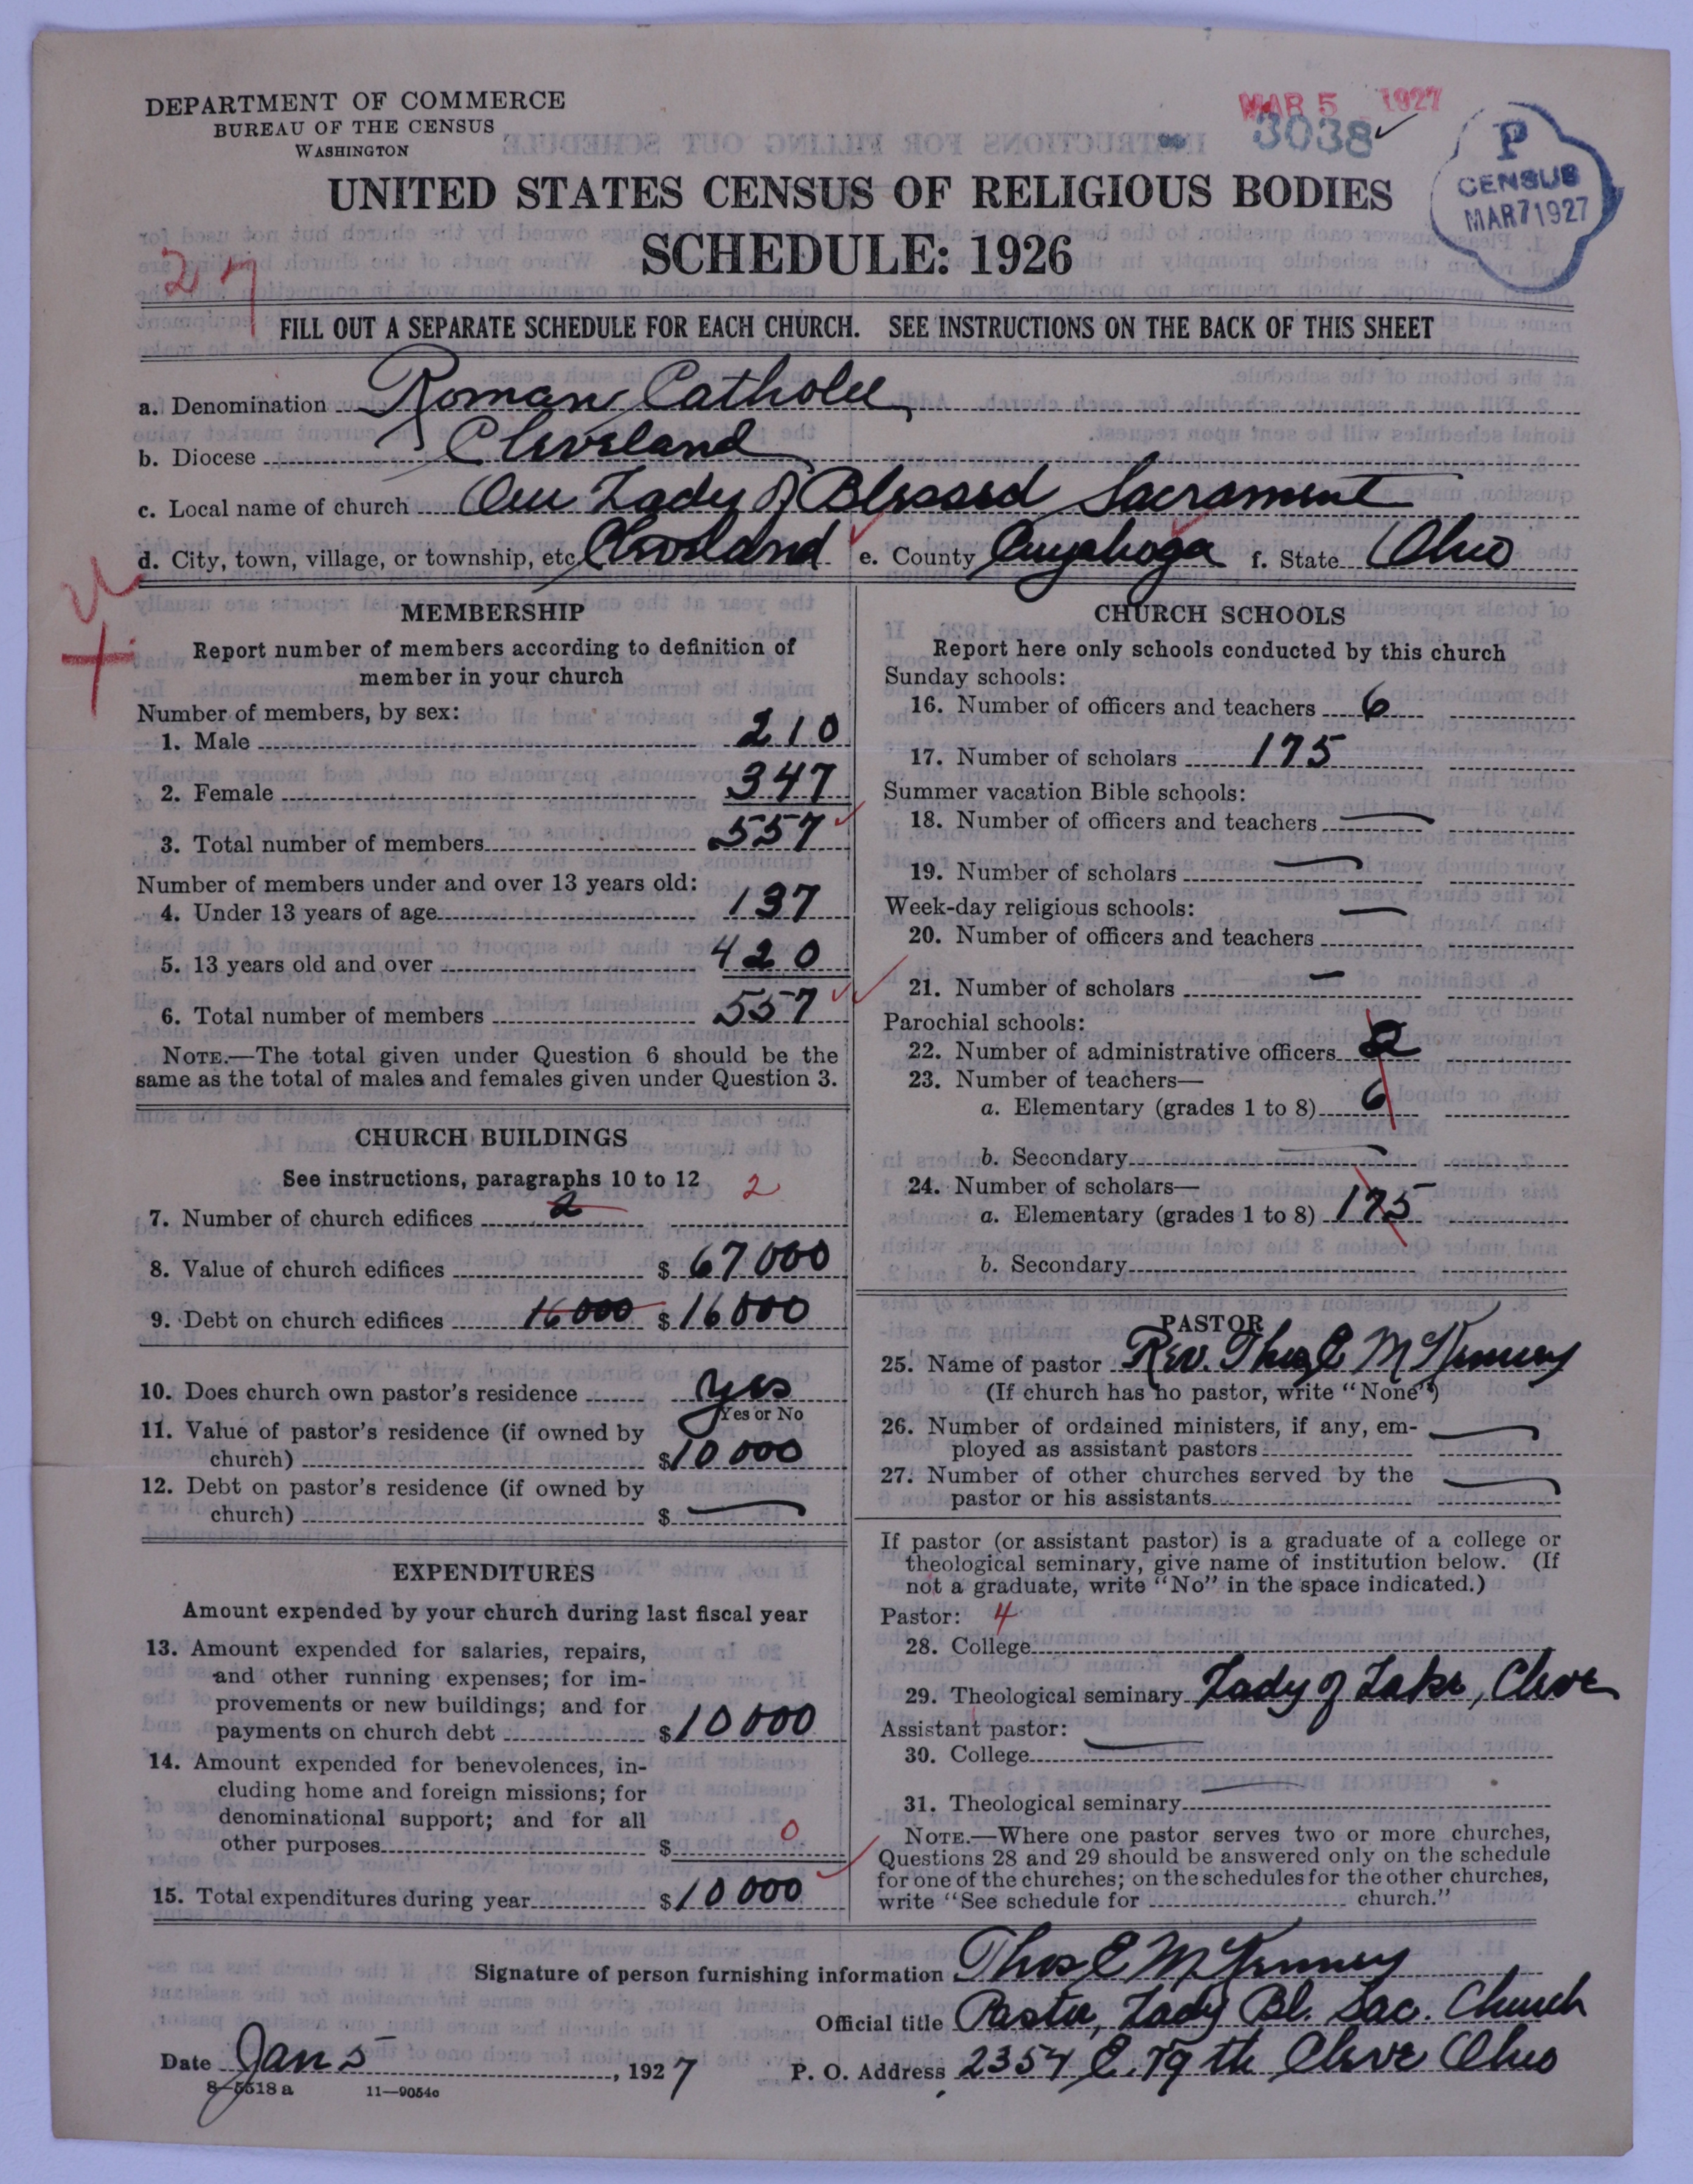 DEPARTMENT OF COMMERCE
BUREAU OF THE CENSUS
WASHINGTON
MAR 5 1927
3038
P
CENSUS
MAR 7 1927
UNITED STATES CENSUS OF RELIGIOUS BODIES
SCHEDULE: 1926
27
FILL OUT A SEPARATE SCHEDULE FOR EACH CHURCH. SEE INSTRUCTIONS ON THE BACK OF THIS SHEET
a. Denomination Roman Catholic
b. Diocese Cleveland
c. Local name of church Our Lady of Blessed Sacrament
d. City, town, village, or township, etc Cleveland e. County Cuyahoga f. State Ohio
MEMBERSHIP
Report number of members according to definition of
member in your church
Number of members, by sex:
1. Male 210
2. Female 347
3. Total number of members 557
Number of members under and over 13 years old:
4. Under 13 years of age 137
5. 13 years old and over 420
6. Total number of members 557
NOTE.—The total given under Question 6 should be the
same as the total of males and females given under Question 3.
CHURCH BUILDINGS
See instructions, paragraphs 10 to 12
7. Number of church edifices 2 2
8. Value of church edifices $ 67000
9. Debt on church edifices 16000 $ 16000
10. Does church own pastor's residence yes
Yes or No
11. Value of pastor's residence (if owned by
church) $ 10000
12. Debt on pastor's residence (if owned by
church) $ —
EXPENDITURES
Amount expended by your church during last fiscal year
13. Amount expended for salaries, repairs,
and other running expenses; for im-
provements or new buildings; and for
payments on church debt $ 10000
14. Amount expended for benevolences, in-
cluding home and foreign missions; for
denominational support; and for all
other purposes $ 0
15. Total expenditures during year $ 10000
CHURCH SCHOOLS
Report here only schools conducted by this church
Sunday schools:
16. Number of officers and teachers 6
17. Number of scholars 175
Summer vacation Bible schools:
18. Number of officers and teachers —
19. Number of scholars —
Week-day religious schools:
20. Number of officers and teachers —
21. Number of scholars —
Parochial schools:
22. Number of administrative officers 2
23. Number of teachers—
a. Elementary (grades 1 to 8) 6
b. Secondary —
24. Number of scholars—
a. Elementary (grades 1 to 8) 175
b. Secondary
PASTOR
25. Name of pastor Rev. Thos E McKenney
(If church has no pastor, write "None")
26. Number of ordained ministers, if any, em-
ployed as assistant pastors —
27. Number of other churches served by the
pastor or his assistants —
If pastor (or assistant pastor) is a graduate of a college or
theological seminary, give name of institution below. (If
not a graduate, write "No" in the space indicated.)
Pastor: 4
28. College
29. Theological seminary Lady of Lake, Cleve
Assistant pastor:
30. College —
31. Theological seminary —
NOTE.—Where one pastor serves two or more churches,
Questions 28 and 29 should be answered only on the schedule
for one of the churches; on the schedules for the other churches,
write "See schedule for church."
Signature of person furnishing information Thos E McKenney
Official title Pastor, Lady Bl. Sac. Church
Date Jan 5, 1927 P. O. Address 2354 E. 79th Cleve Ohio
8—5518 a 11—9054c